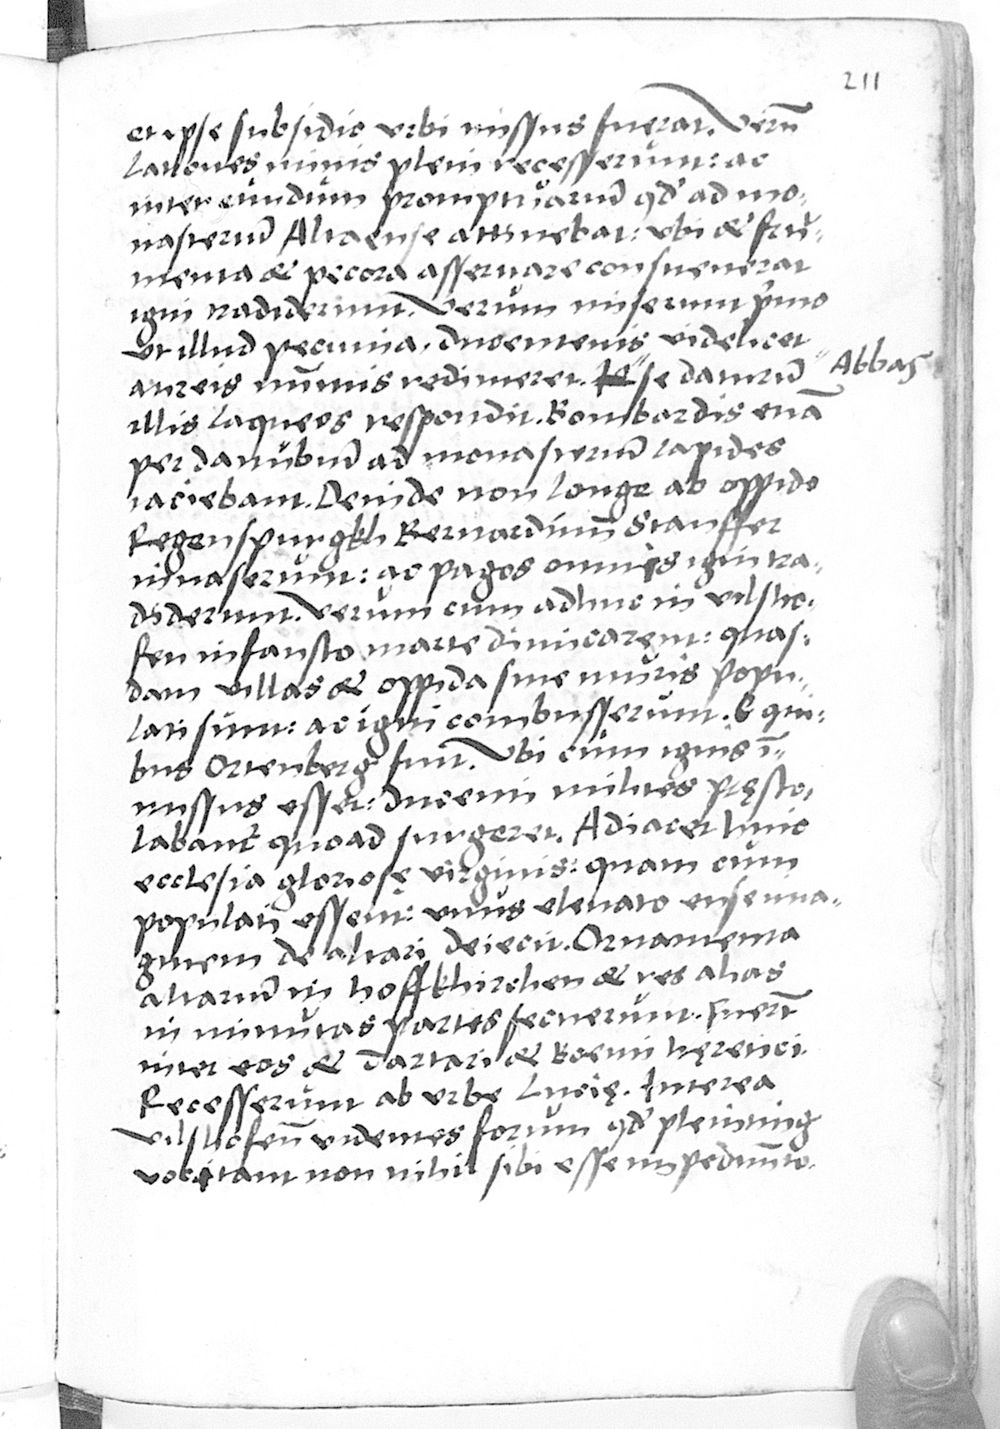 211
et ipse subsidio vrbi missus fuerat. Verũ
latrones nimis pleni recesserunt: ac
inter eundum promptuariũ qđ ad mo-
nasteriũ Altaense attinebat: vbi & fru-
menta & pecora asseruare consueuerat
igni tradiderunt. Verum miserunt p̃mo
vt illud pecunia, ducentenis videlicet
aureis nũmis redimeret. se daturũ Abbas
illis laqueos respondit. Bombardis etiã
per danubiũ ad monasteriũ lapides
iaciebant. Deinde non longe ab oppido
Regenspurgkh Bernardinũ Stauffer
inuaserunt: ac pagos omnes igni tra-
diderunt. Verum cum adhuc in vilsho-
fen infausto marte dimicarent: quas-
dam villas & oppida sine muris popu-
lati sunt: ac igni combusserunt. E qui-
bus Ortenberg fuit. Vbi cum ignis ĩ-
missus esset: ducenti milites pręsto-
labant quoad surgeret. Adiacet huic
ecclesia gloriosę virginis: quam cum
populati essent: vnus eleuato ense ima-
ginem de altari deiecit. Ornamenta
altariũ in hoffkhirchen & res alias
in minutas partes secuerunt. Fuerũt
inter eos & Tartari & Boemi hęretici.
Recesserunt ab vrbe Lucię. Interea
vilshofeñ videntes forum qđ pleinting
vocitant non nihil sibi esse impedimẽto.